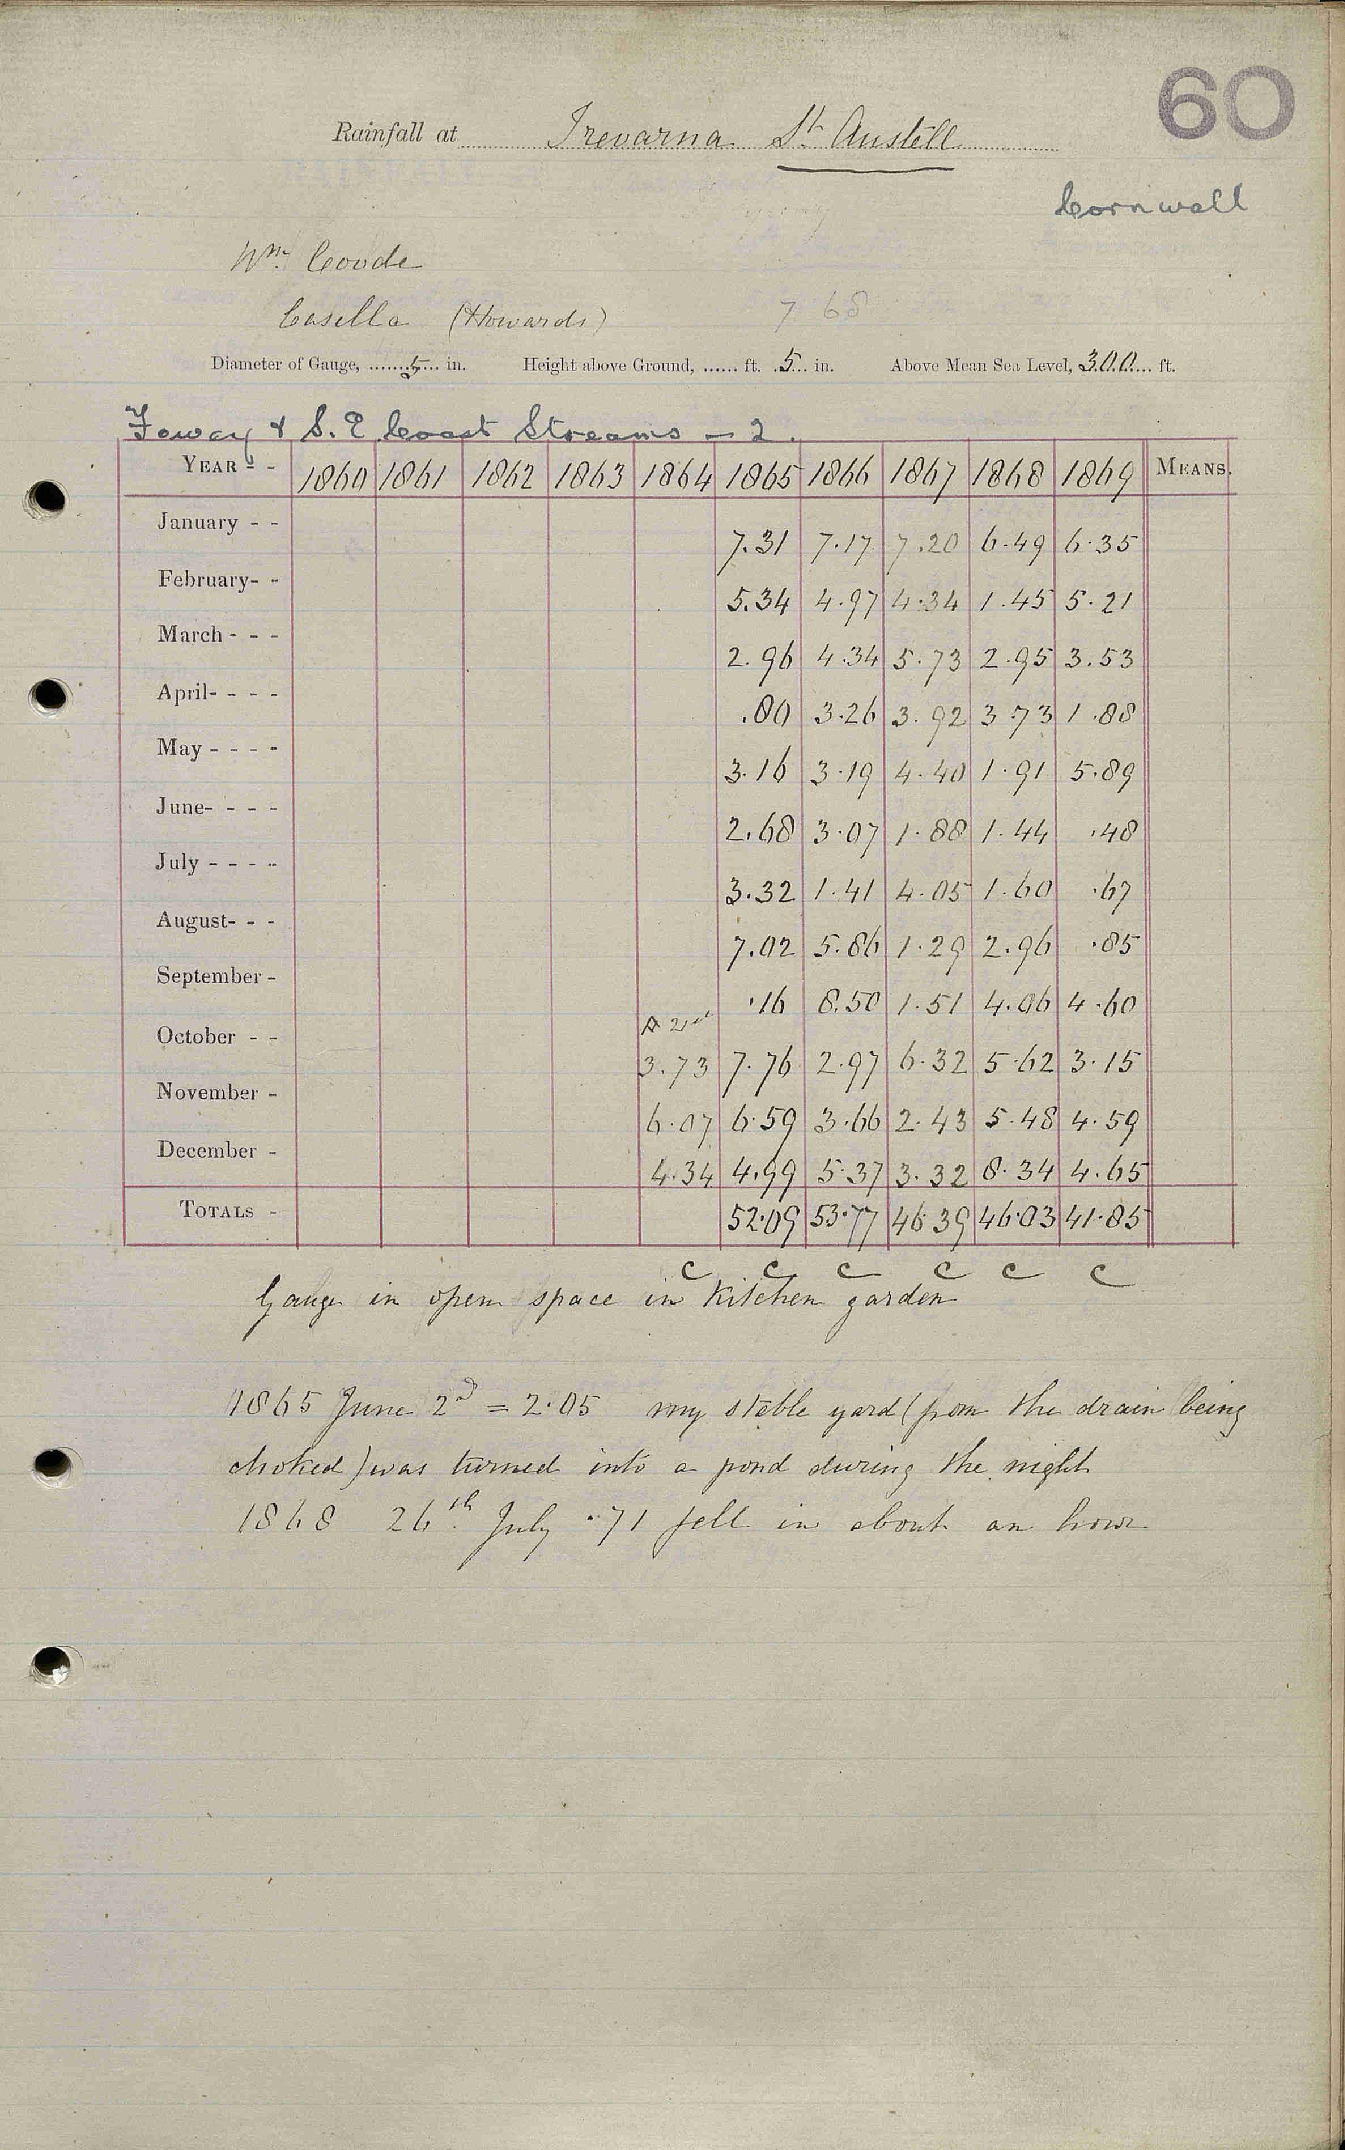 60
Rainfall at Trevarna St. Austell
Cornwall
Wm. Coode
Casella (Howards) 7 68
Diameter of Gauge, 5 in. Height above Ground, ...... ft. 5 in. Above Mean Sea Level, 300 ft.
Fowey & S.E Coast Streams - 2.
YEAR - - 1860 1861 1862 1863 1864 1865 1866 1867 1868 1869 MEANS.
January - - 7.31 7.17 7.20 6.49 6.35
February- - 5.34 4.97 4.34 1.45 5.21
March - - - 2.96 4.34 5.73 2.95 3.53
April- - - - .80 3.26 3.92 3.73 1.88
May - - - - 3.16 3.19 4.40 1.91 5.89
June- - - - 2.68 3.07 1.88 1.44 .48
July - - - - 3.32 1.41 4.05 1.60 .67
August- - - 7.02 5.86 1.29 2.96 .85
September - .16 8.50 1.51 4.06 4.60
October - - 3.73 7.76 2.97 6.32 5.62 3.15
November - 6.07 6.59 3.66 2.43 5.48 4.59
December - 4.34 4.99 5.37 3.32 8.34 4.65
TOTALS - 52.09 53.77 46.39 46.03 41.85
c c c c c c
Gauge in open space in Kitchen garden
1865 June 2d = 2.05 my stable yard (from the drain being
choked) was turned into a pond during the night
1868 26th. July .71 fell in about an hour